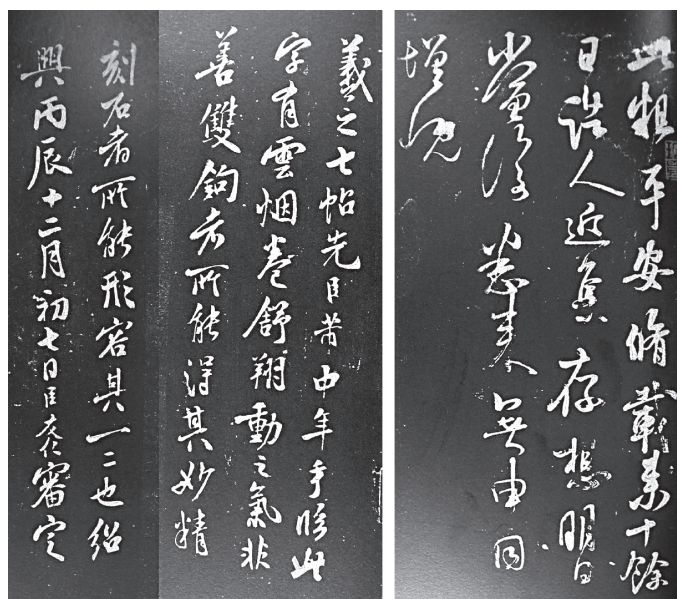 此粗平安脩載來十餘
日諸人近集存想明日
當復悉來無由同
增慨
羲之七帖先臣芾中年手臨此
字有雲烟卷舒翔動之氣非
善雙鉤者所能得其妙精
刻石者所能形容其一二也紹
興丙辰十二月初七日臣友仁審定